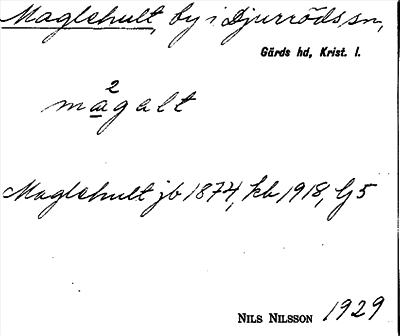 Maglehult, by i Djurröds sn,
Gärds hd, Krist. l.
2
magalt
Maglehult jb 1874, kb 1918, G5
NILS NILSSON 1929